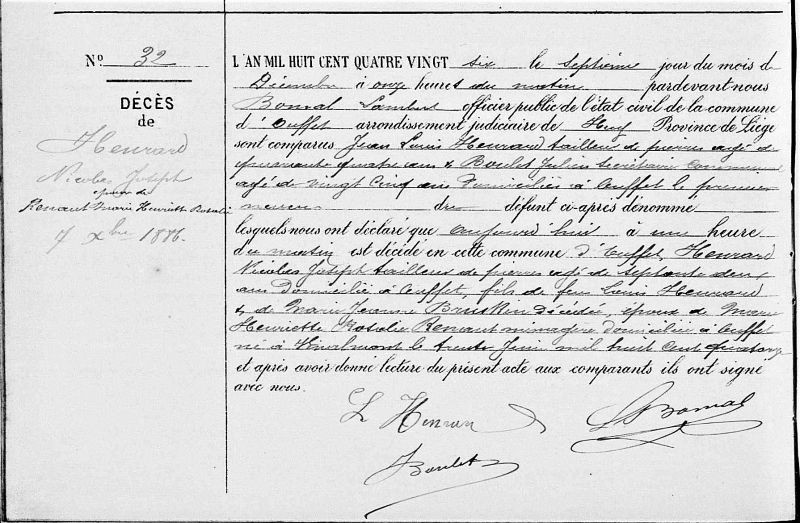 N° 32
DÉCÈS
de
Henrard
Nicolas Joseph
époux de
Renaut Marie Henriette Rosalie
7 Xbre 1886.
L'AN MIL HUIT CENT QUATRE VINGT six le septième jour du mois d
Décembre à onze heures du matin pardevant nous
Bomal Lambert officier public de l'état civil de la commune
d'Ouffet arrondissement judiciaire de Huy Province de Liége
sont comparus Jean Louis Henrard tailleur de pierres agé de
quarante quatre ans & Boulet Julien Secrétaire Communal
agé de vingt cinq ans domiciliés à Ouffet le premier
neveu du défunt ci-après dénommé
lesquels nous ont déclaré que aujourd'hui à une heure
du matin est décédé en cette commune d'Ouffet, Henrard
Nicolas Joseph tailleur de pierres agé de septante deux
ans domicilié à Ouffet, fils de feu Louis Henrard
& de Marie Jeanne décédée, époux de Marie
Henriette Rosalie Renaut ménagère domiciliée à Ouffet
né à le trente Juin mil huit cent quatorze
et après avoir donné lecture du présent acte aux comparants ils ont signé
avec nous.
L Henrard
L Bomal
Boulet